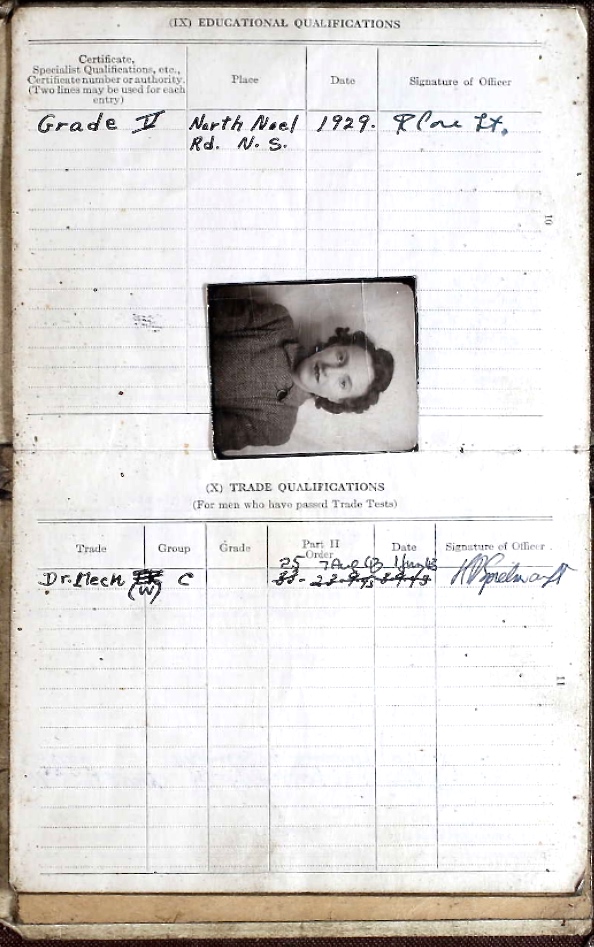 (IX) EDUCATIONAL QUALIFICATIONS
Certificate,
Specialist Qualifications, etc.,
Certificate number or authority.
(Two lines may be used for each
entry)
Place
Date
Signature of Officer
Grade V
North Noel
1929.
Lt.
Rd. N. S.
10
(X) TRADE QUALIFICATIONS
(For men who have passed Trade Tests)
Trade
Group
Grade
Part II
Order
Date
Signature of Officer
25 7 Aug 43
Dr. Mech
C
(W)
11